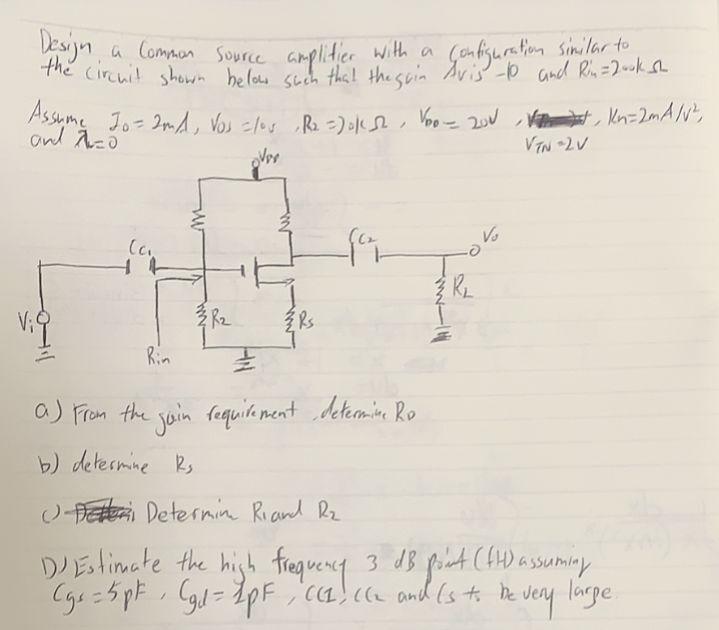 Design a Common Source amplifier with a Configuration similar to
the circuit shown below such that the gain Av is -10 and Rin = 200k Ω
Assume ID = 2mA, VDS = 10v , RL = 20k Ω , VDD = 20V , Kn=2mA/V²,
and λ=0 VTN = 2V
VDD
CC1
CC2
Vo
RL
Vi
R2
Rs
Rin
a) From the gain requirement , determine RD
b) determine Rs
c) Determin R1 and R2
D) Estimate the high frequency 3 dB point (fH) assuming
Cgs = 5pF , Cgd = 1pF , CC1, CC2 and Cs to be very large.